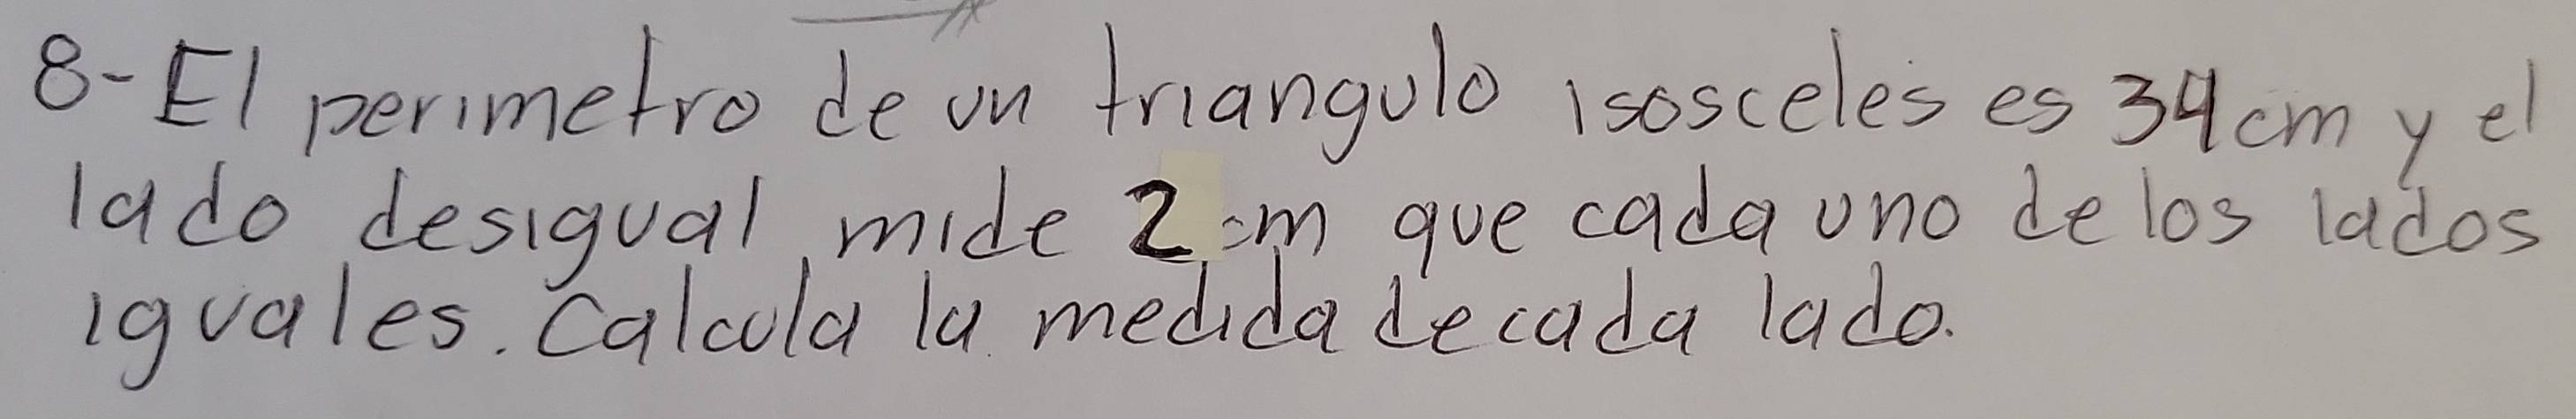 8-El perimetro de un triangulo isosceles es 34cm y el
lado desigual mide 2cm que cada uno de los lados
iguales. Calcula la medida de cada lado.